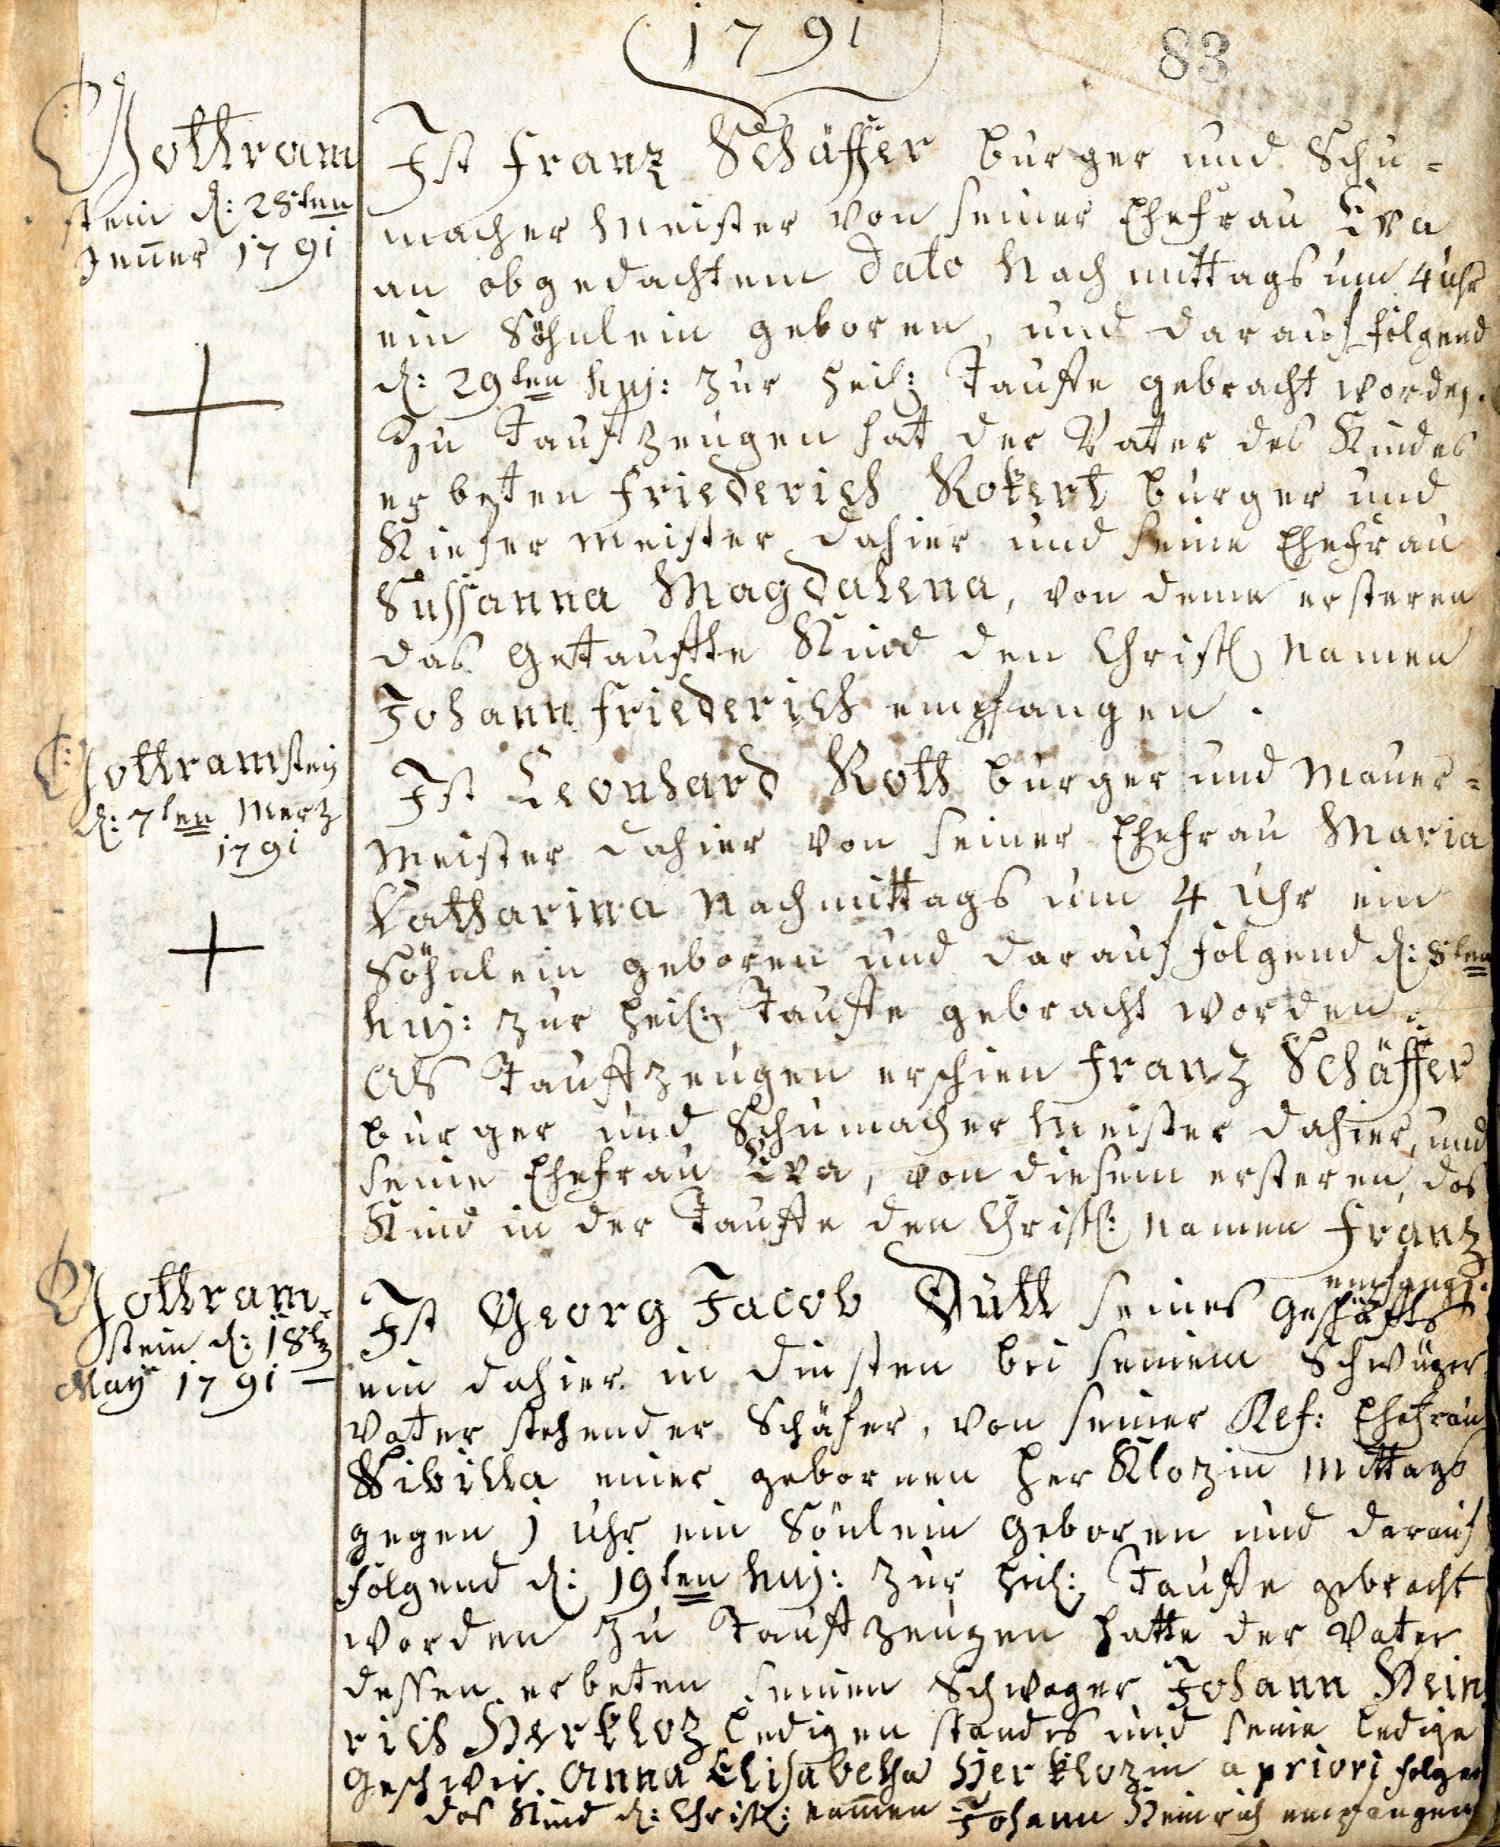 1791
83
Gottram
stein d: 28ten
Jenner 1791
Ist Franz Schäffer burger und Schu=
macher Meister von seiner Ehefrau Eva
an obgedachtem dato Nach mittags um 4 uhr
ein Söhnlein geboren, und darauf folgend
d: 29ten huj: zur heil: Tauffe gebracht worden.
Zu Taufzeugen hat der Vater des Kindes
erbeten Friederich Rokert burger und
Kiefer Meister dahier und seine Ehefrau
Sussanna Magdalena, von deme ersteren
das getauffte Kind den Christl Namen
Johann Friederich empfangen.
Gottramstein
d: 7ten Merz
1791
Ist Leonhard Roth burger und Maurer=
Meister dahier von seiner Ehefrau Maria
Catharina Nachmittags um 4 Uhr ein
Söhnlein geboren und darauf folgend d: 8ten
huj: zur heil: Tauffe gebracht worden.
Als Tauffzeugen erschien Franz Schäffer
burger und Schumacher Meister dahier, und
seine Ehefrau Eva, von diesem ersteren, das
Kind in der Tauffe den Christl: Namen Franz
empfangen.
Gottram=
stein d: 18t
May 1791 —
Ist Georg Jacob Dull seines Geschäffts
ein dahier in dinsten bei seinem Schwüger
vater stehender Schäfer, von seiner Ref: Ehefrau
Sibilla einer gebornen Her Klozin Mittags
gegen 1 Uhr ein Sönlein geboren und darauf
folgend d: 19ten huj: zur heil: Tauffe gebracht
worden zu Tauffzeugen hatte der Vater
dessen erbeten seinen Schwager Johann Hein
rich Herkloz ledigen standes und seine ledige
Geschwei. Anna Elisabetha Herklozin a priori folgen
das Kind d: Christl: namen Johann Heinrich empfangen